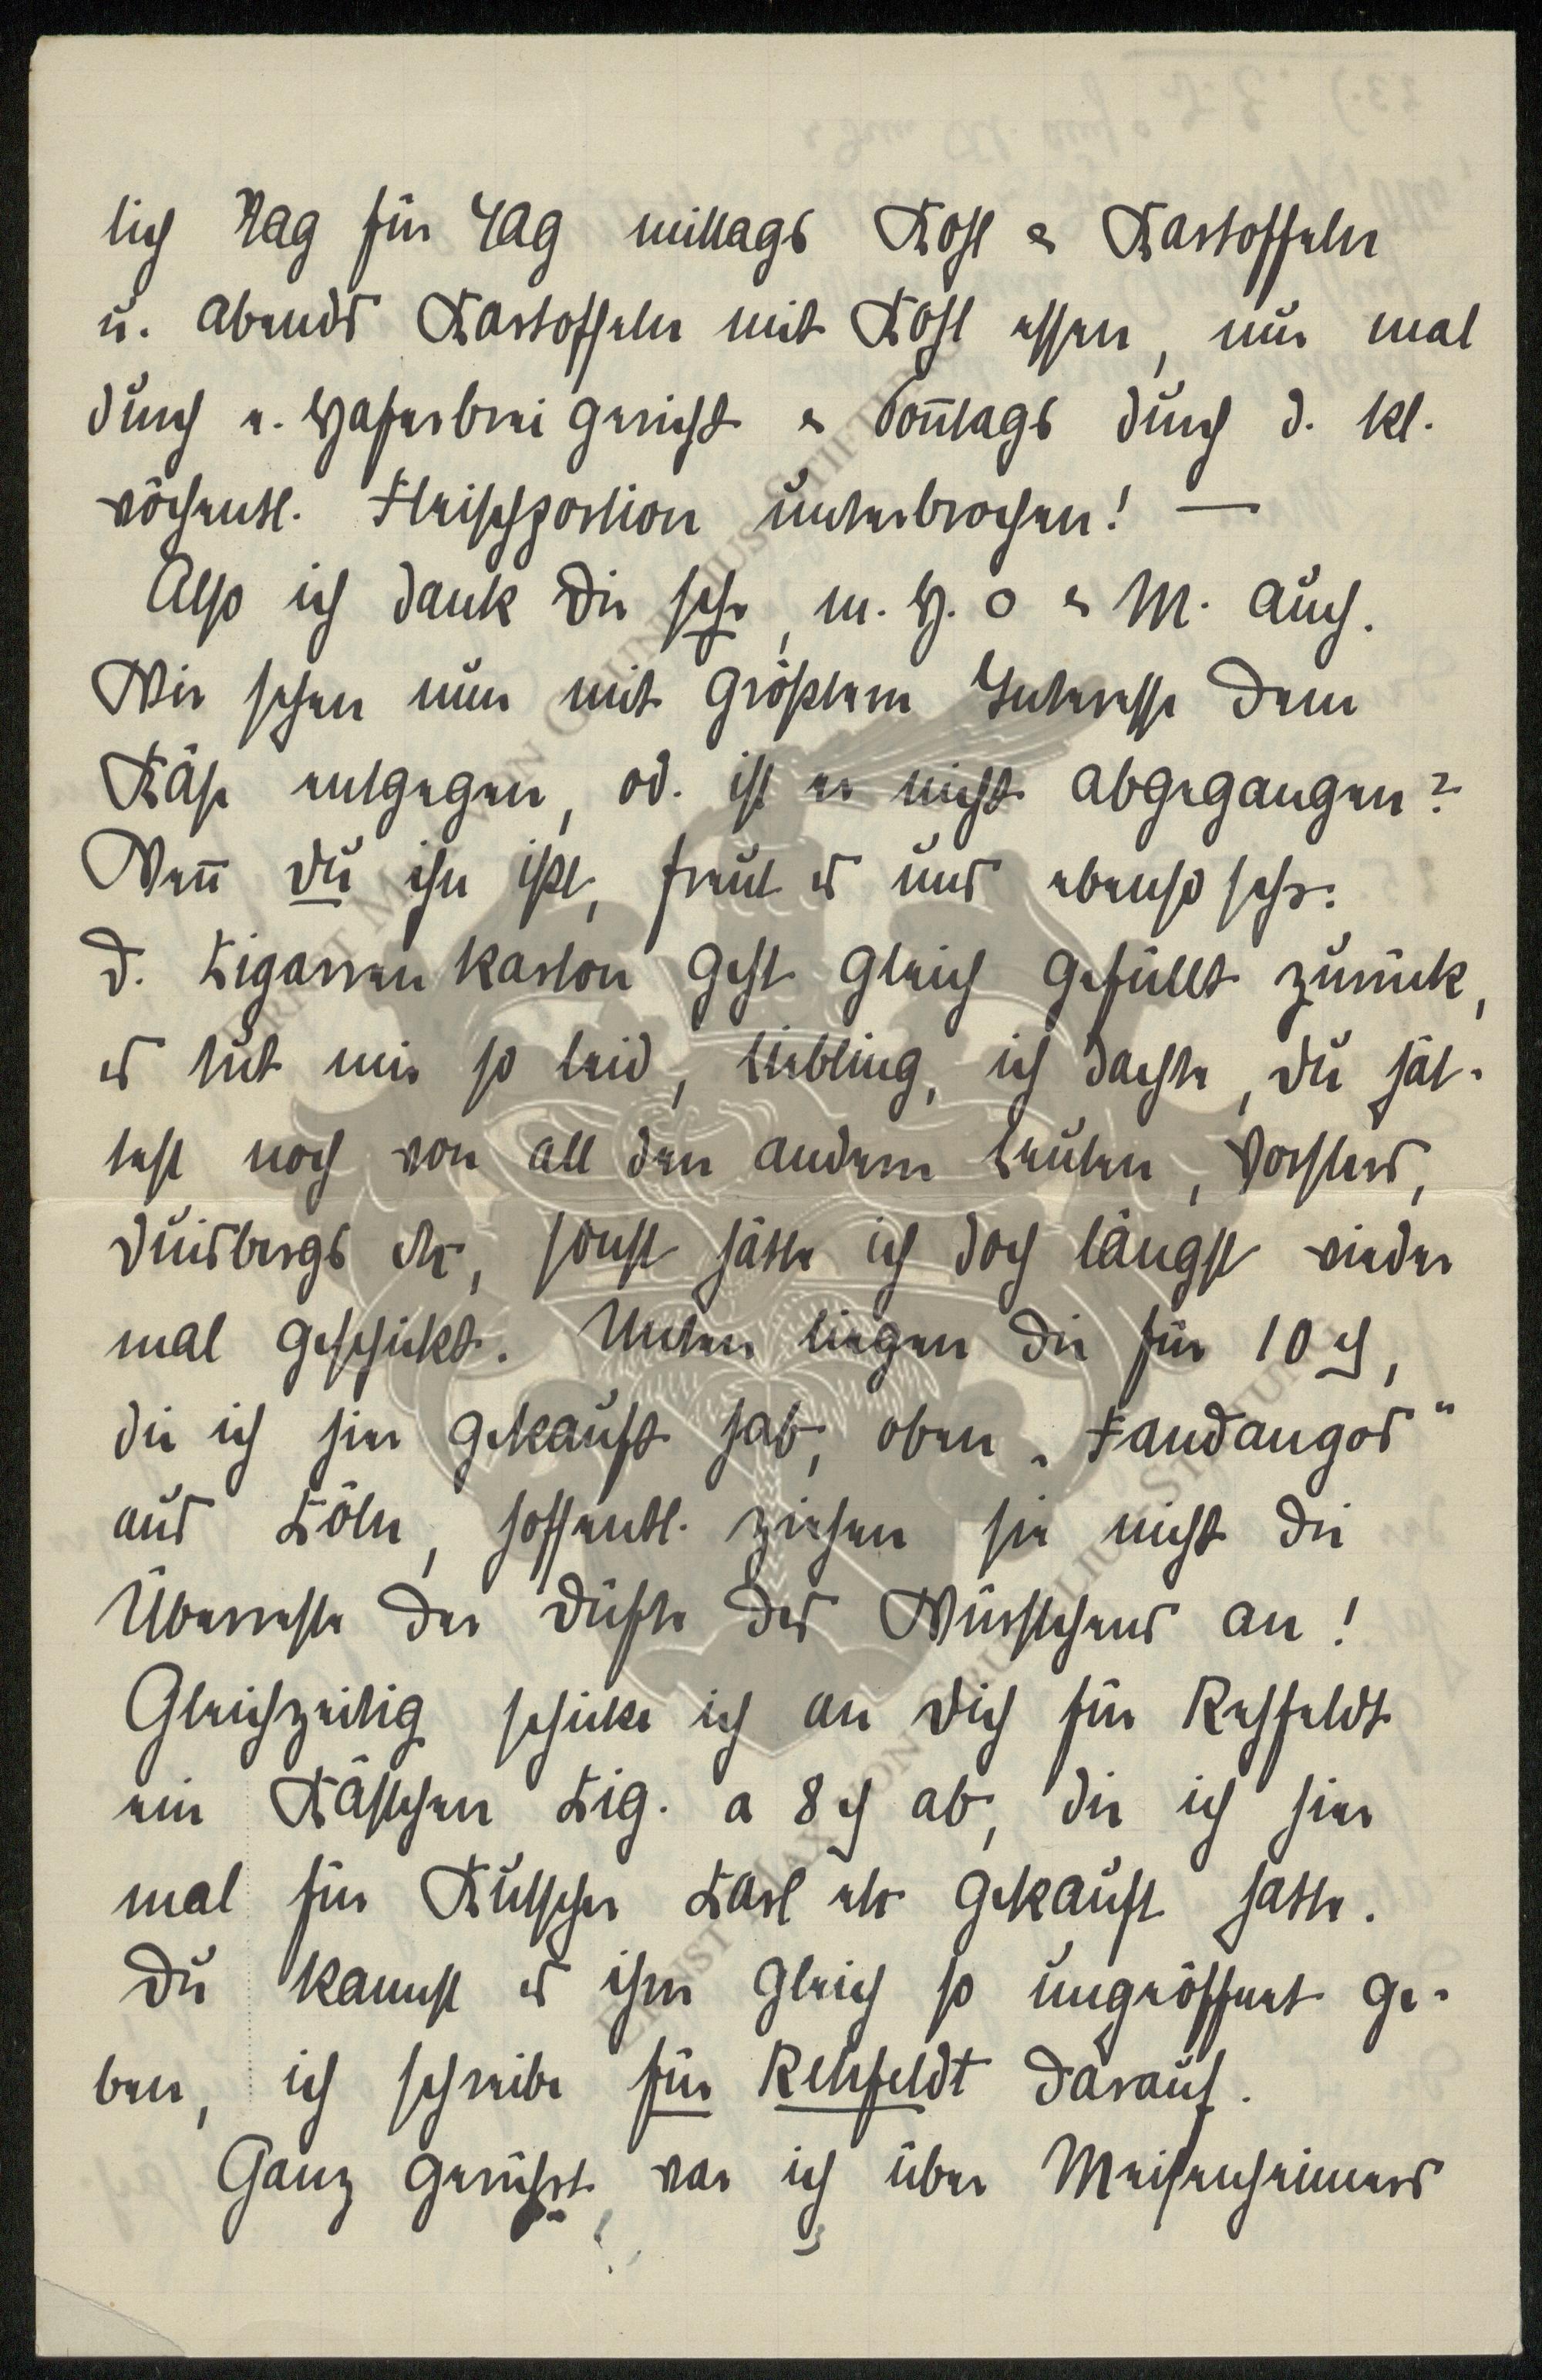 lich Tag für Tag mittags Kohl & Kartoffeln
u. abends Kartoffeln mit Kohl essen, nur mal
durch e. Haferbreigericht & Sonntags durch d. kl.
wöchentl. Fleischportion unterbrochen! —
Also ich dank Dir sehr, m. H. O & M. auch.
Wir sehen nun mit größtem Interesse dem
Käse entgegen, od. ist er nicht abgegangen?
Wenn Du ihn ißt, freut es uns ebenso sehr.
D. Cigarrenkarton geht gleich gefüllt zurück,
es tut mir so leid, Liebling, ich dachte, Du hät-
test noch von all den andern Leuten, Vorsters,
Duisbergs etc, sonst hätte ich doch längst wieder
mal geschickt. Unten liegen die für 10 ₰,
die ich hier gekauft hab, oben „Fandangos“
aus Cöln, hoffentl. ziehen sie nicht die
Überreste der Düfte des Würstchens an!
Gleichzeitig schicke ich an Dich für Rehfeldt
ein Kästchen Cig. a 8 ₰ ab, die ich hier
mal für Kutscher Carl etc gekauft hatte.
Du kannst es ihm gleich so ungeöffnet ge-
ben, ich schreibe für Rehfeldt darauf.
Ganz gerührt war ich über Meisenheimers